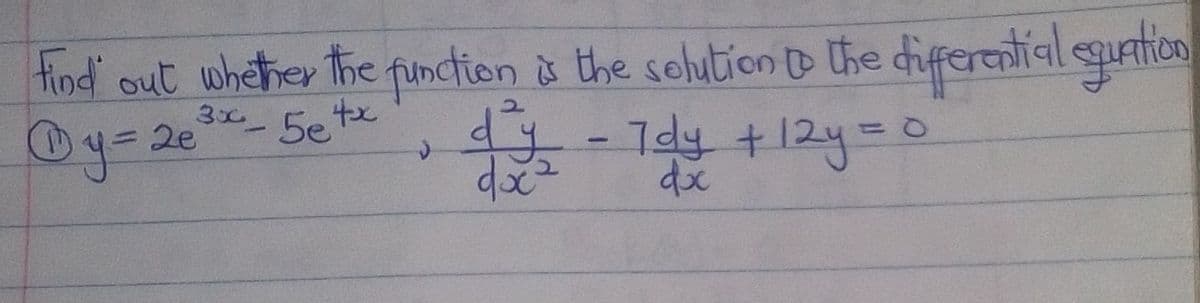 Find out whether the function is the solution to the differential equation
① y = 2e^{3x} - 5e^{4x} , d²y/dx² - 7dy/dx + 12y = 0